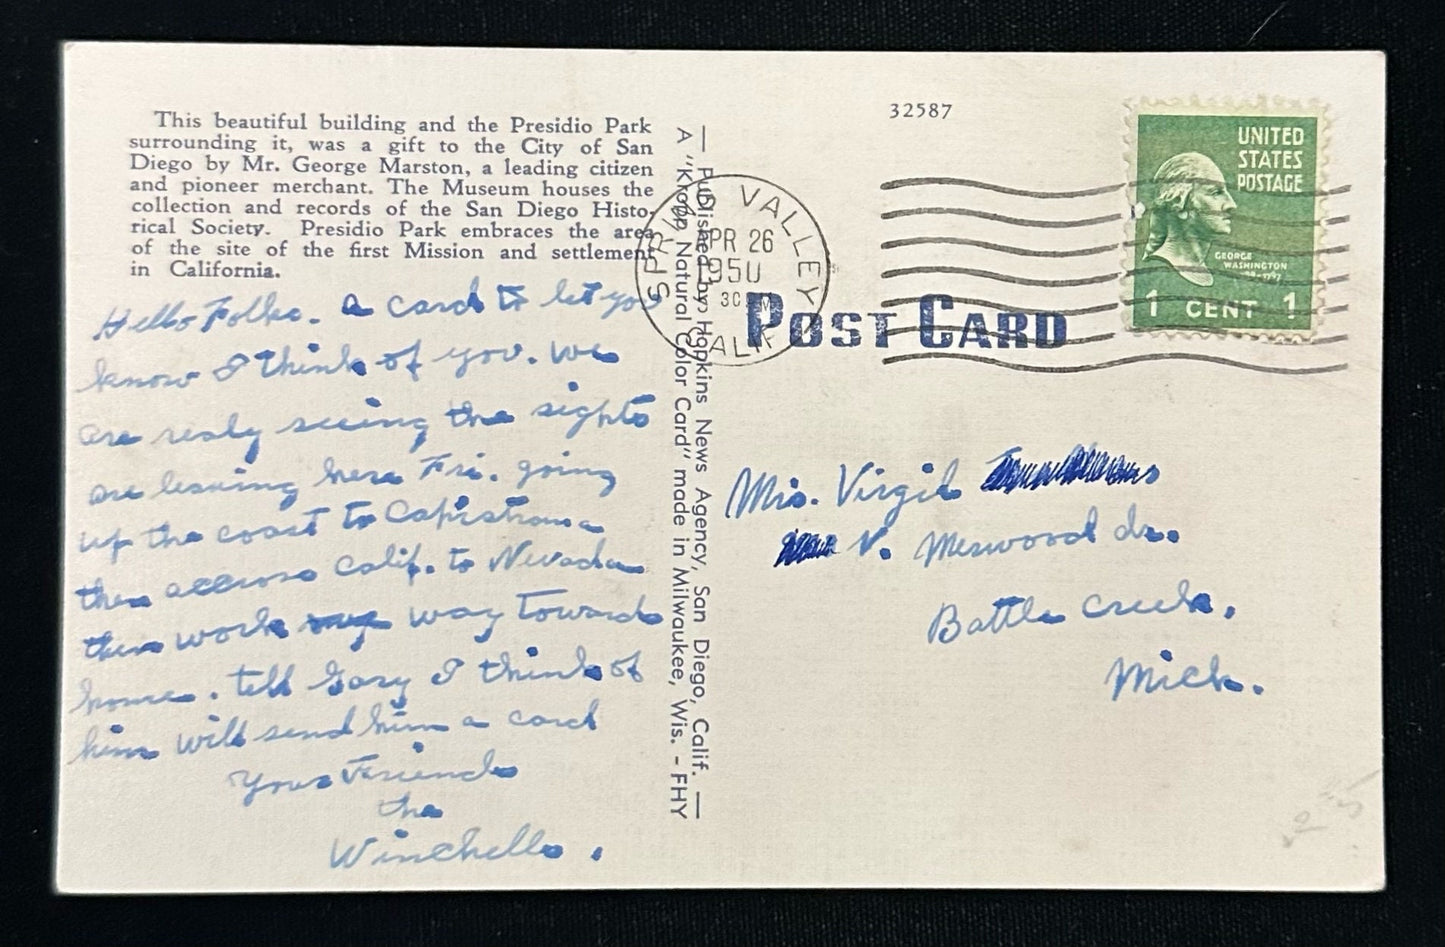 This beautiful building and the Presidio Park
surrounding it, was a gift to the City of San
Diego by Mr. George Marston, a leading citizen
and pioneer merchant. The Museum houses the
collection and records of the San Diego Histo-
rical Society. Presidio Park embraces the area
of the site of the first Mission and settlement
in California.
Hello Folks. a card to let you
know I think of you. We
are realy seeing the sights
are leaving here Fri. going
up the coast to Capistrana
then accross Calif. to Nevada
then work way towards
home. tell Gary I think of
him will send him a card
Your Friends
the
Winchells.
— Published by Hopkins News Agency, San Diego, Calif. —
A "Kropp Natural Color Card" made in Milwaukee, Wis. - FHY
32587
SPRING VALLEY
APR 26
1950
CALIF
POST CARD
UNITED
STATES
POSTAGE
GEORGE
WASHINGTON
1 CENT 1
Mrs. Virgil
N. Merwood dr.
Battle Creek.
Mich.